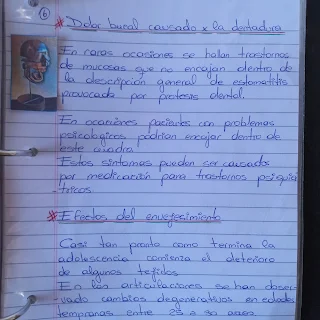 6
* Dolor bucal causado x la dentadura
En raras ocasiones se hallan trastornos
de mucosas que no encajan dentro de
la descripción general de estomatitis
provocada por protesis dental.
En ocaciones pacientes con problemas
psicologicos podrian encajar dentro de
este cuadro.
Estos sintomas pueden ser causados
por medicación para trastornos psiquia
-tricos.
* Efectos del envejesimiento
Casi tan pronto como termina la
adolescencia comienza el deterioro
de algunos tejidos.
En las articulaciones se han obser-
vado cambios degenerativos en edades
tempranas entre 25 a 30 años